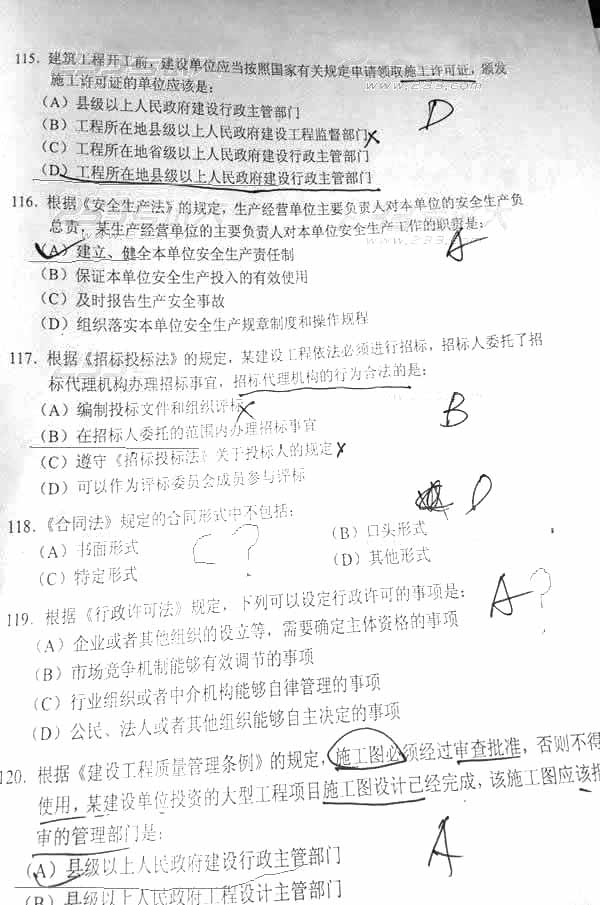 115. 建筑工程开工前，建设单位应当按照国家有关规定申请领取施工许可证，颁发
施工许可证的单位应该是：
(A) 县级以上人民政府建设行政主管部门
(B) 工程所在地县级以上人民政府建设工程监督部门 x
(C) 工程所在地省级以上人民政府建设行政主管部门
(D) 工程所在地县级以上人民政府建设行政主管部门
D
116. 根据《安全生产法》的规定，生产经营单位主要负责人对本单位的安全生产负
总责，某生产经营单位的主要负责人对本单位安全生产工作的职责是：
(A) 建立、健全本单位安全生产责任制
A
(B) 保证本单位安全生产投入的有效使用
(C) 及时报告生产安全事故
(D) 组织落实本单位安全生产规章制度和操作规程
117. 根据《招标投标法》的规定，某建设工程依法必须进行招标，招标人委托了招
标代理机构办理招标事宜，招标代理机构的行为合法的是：
(A) 编制投标文件和组织评标 x
B
(B) 在招标人委托的范围内办理招标事宜
(C) 遵守《招标投标法》关于投标人的规定 x
(D) 可以作为评标委员会成员参与评标
D
118. 《合同法》规定的合同形式中不包括：
(A) 书面形式
(B) 口头形式
C ?
(C) 特定形式
(D) 其他形式
119. 根据《行政许可法》规定，下列可以设定行政许可的事项是：
A ?
(A) 企业或者其他组织的设立等，需要确定主体资格的事项
(B) 市场竞争机制能够有效调节的事项
(C) 行业组织或者中介机构能够自律管理的事项
(D) 公民、法人或者其他组织能够自主决定的事项
120. 根据《建设工程质量管理条例》的规定，施工图必须经过审查批准，否则不得
使用，某建设单位投资的大型工程项目施工图设计已经完成，该施工图应该报
审的管理部门是：
A
(A) 县级以上人民政府建设行政主管部门
(B) 县级以上人民政府工程设计主管部门